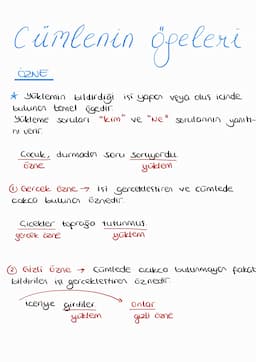 Cümlenin öğeleri
ÖZNE
* Yüklemin bildirdiği işi yapan veya oluş içinde
bulunan temel ögedir.
Yükleme sorulan "kim" ve "ne" sorularının yanıtı-
nı verir.
Çocuk, durmadan soru soruyordu.
özne yüklem
① Gerçek özne → İşi gerçekleştiren ve cümlede
açıkça bulunan öznedir.
Çiçekler toprağa tutunmuş.
gerçek özne yüklem
② Gizli özne → Cümlede açıkça bulunmayan fakat
bildirilen işi gerçekleştiren öznedir.
İçeriye girdiler. Onlar
yüklem gizli özne